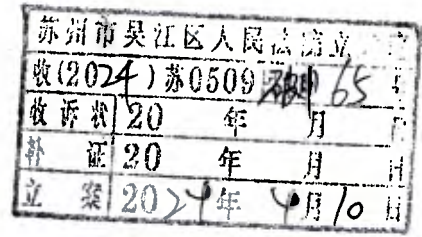 苏州市吴江区人民法院立
收(2024)苏0509 65号
收诉状 20 年 月 日
补证 20 年 月 日
立案 2024年4月10日